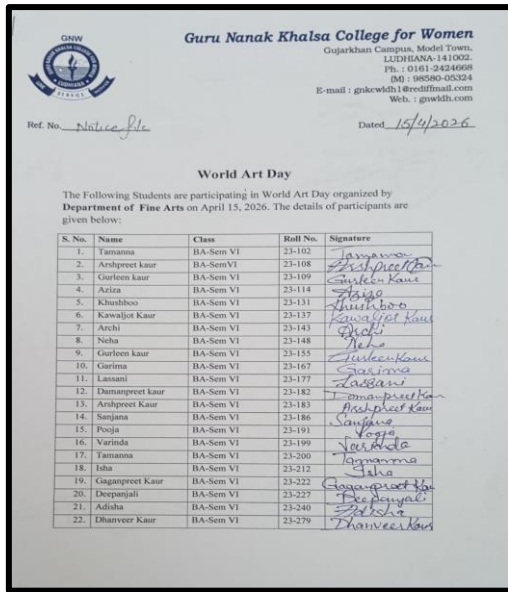 GNW
LUDHIANA
Guru Nanak Khalsa College for Women
Gujarkhan Campus, Model Town,
LUDHIANA-141002.
Ph. : 0161-2424668
(M) : 98580-05324
E-mail : gnkcwldh1@rediffmail.com
Web. : gnwldh.com
Ref. No. Notice file Dated 15/4/2026
World Art Day
The Following Students are participating in World Art Day organized by
Department of Fine Arts on April 15, 2026. The details of participants are
given below:
S. No. Name Class Roll No. Signature
1. Tamanna BA-Sem VI 23-102 Tamanna
2. Arshpreet kaur BA-SemVI 23-108 Arshpreet Kaur
3. Gurleen kaur BA-Sem VI 23-109 Gurleen Kaur
4. Aziza BA-Sem VI 23-114 Aziza
5. Khushboo BA-Sem VI 23-131 Khushboo
6. Kawaljot Kaur BA-Sem VI 23-137 Kawaljot Kaur
7. Archi BA-Sem VI 23-143 Archi
8. Neha BA-Sem VI 23-148 Neha
9. Gurleen kaur BA-Sem VI 23-155 Gurleen Kaur
10. Garima BA-Sem VI 23-167 Garima
11. Lassani BA-Sem VI 23-177 Lassani
12. Damanpreet kaur BA-Sem VI 23-182 Damanpreet Kaur
13. Arshpreet Kaur BA-Sem VI 23-183 Arshpreet Kaur
14. Sanjana BA-Sem VI 23-186 Sanjana
15. Pooja BA-Sem VI 23-191 Pooja
16. Varinda BA-Sem VI 23-199 Varinda
17. Tamanna BA-Sem VI 23-200 Tamanna
18. Isha BA-Sem VI 23-212 Isha
19. Gaganpreet Kaur BA-Sem VI 23-222 Gaganpreet Kaur
20. Deepanjali BA-Sem VI 23-227 Deepanjali
21. Adisha BA-Sem VI 23-240 Adisha
22. Dhanveer Kaur BA-Sem VI 23-279 Dhanveer Kaur